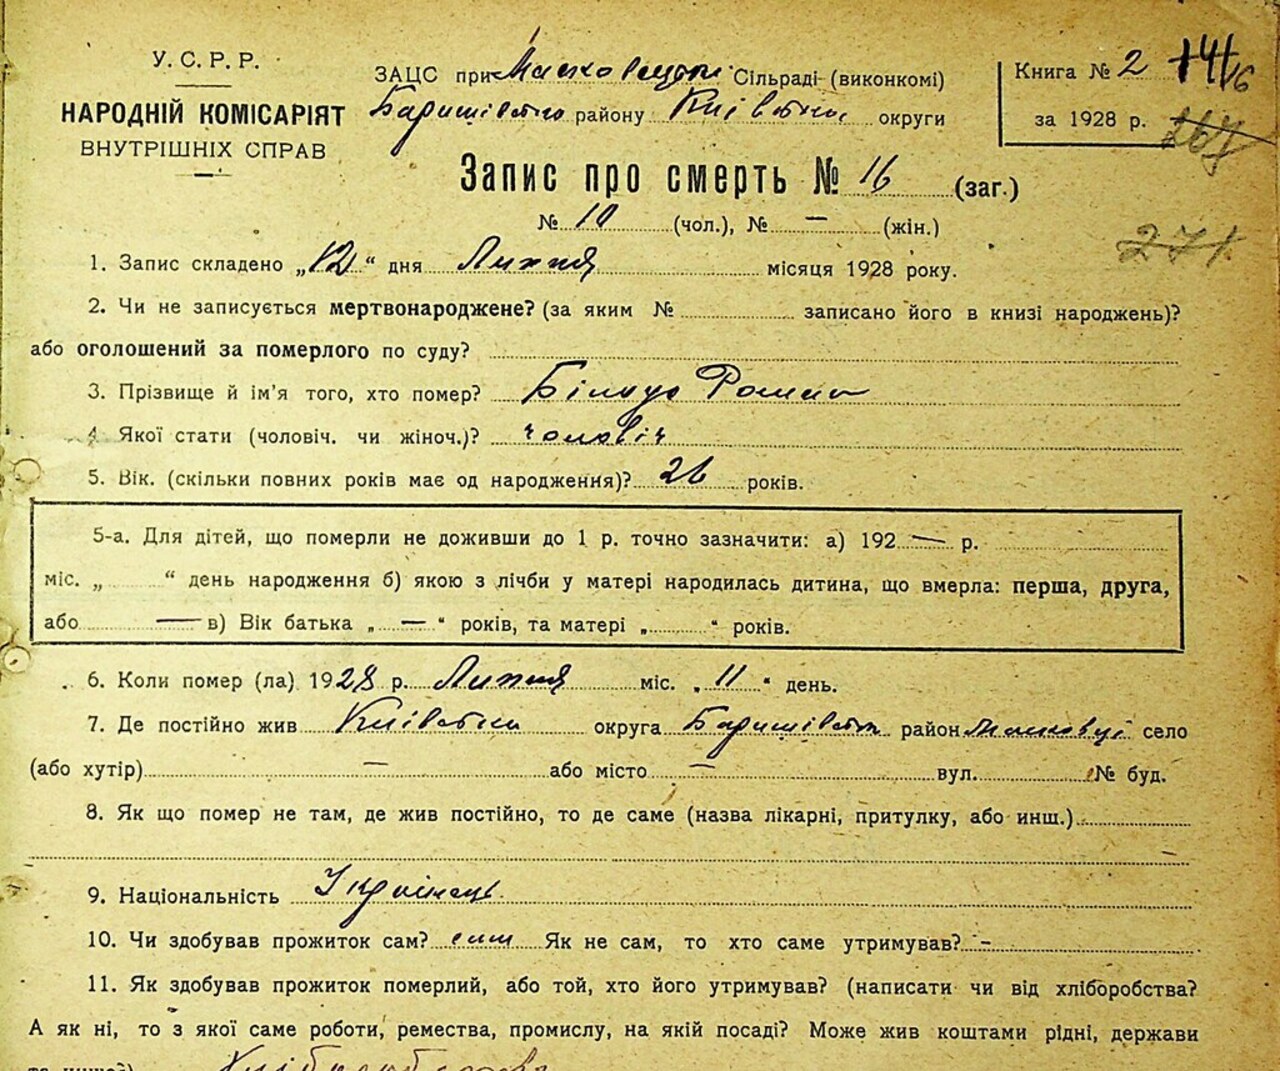 У. С. Р. Р.
НАРОДНІЙ КОМІСАРІЯТ
ВНУТРІШНІХ СПРАВ
ЗАЦС при Масковецькій Сільраді (виконкомі)
Баришівсько району Київсько округи
Книга № 2
за 1928 р.
267
Запис про смерть № 16 (заг.)
№ 10 (чол.), № — (жін.)
271
1. Запис складено „12“ дня Липня місяця 1928 року.
2. Чи не записується мертвонароджене? (за яким № записано його в книзі народжень)?
або оголошений за померлого по суду?
3. Прізвище й ім'я того, хто помер? Роман
4. Якої стати (чоловіч. чи жіноч.)? чоловіч
5. Вік. (скільки повних років має од народження)? 26 років.
5-а. Для дітей, що померли не доживши до 1 р. точно зазначити: а) 192 — р.
міс. „ “ день народження б) якою з лічби у матері народилась дитина, що вмерла: перша, друга,
або — в) Вік батька „ — “ років, та матері „ “ років.
6. Коли помер (ла) 1928 р. Липня міс. „11“ день.
7. Де постійно жив Київська округа Баришівськ район Масковці село
(або хутір) — або місто — вул. № буд.
8. Як що помер не там, де жив постійно, то де саме (назва лікарні, притулку, або инш.)
9. Національність Українець
10. Чи здобував прожиток сам? сам Як не сам, то хто саме утримував? -
11. Як здобував прожиток померлий, або той, хто його утримував? (написати чи від хліборобства?
А як ні, то з якої саме роботи, ремества, промислу, на якій посаді? Може жив коштами рідні, держави